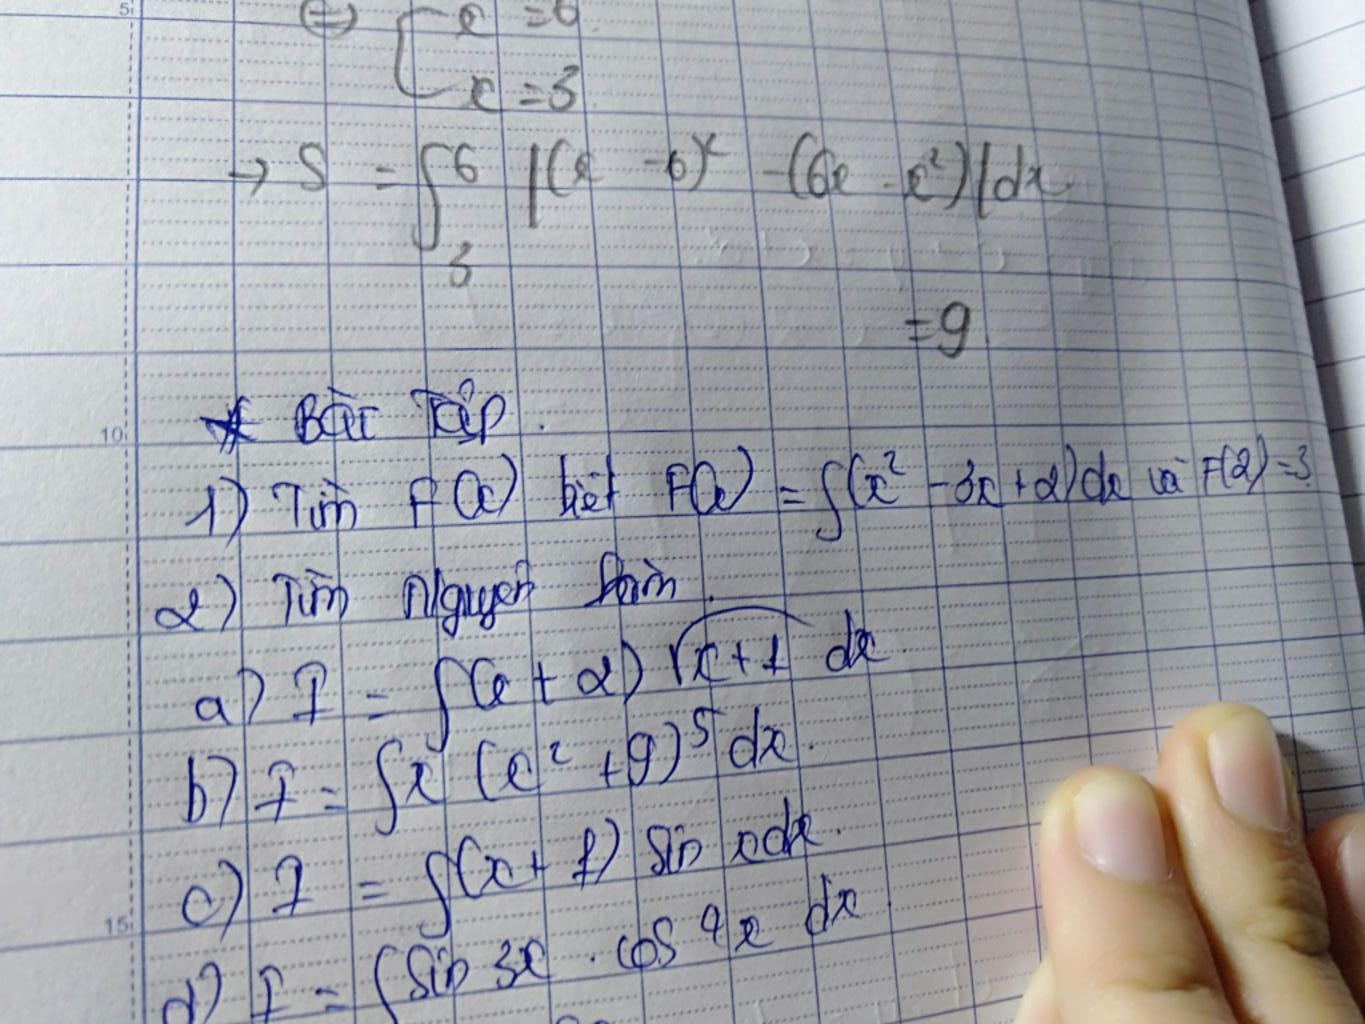 5
⇔ [ x = 6
x = 3
→ S = ∫₃⁶ |(x - 6)² - (6x - x²)| dx
= 9
* Bài Tập.
10
1) Tìm F(x) biết F(x) = ∫(x² - 3x + 2)dx và F(2) = 3
2) Tìm Nguyen hàm.
a) I = ∫(x + 2) √(x + 1) dx.
b) I = ∫x (x² + 9)⁵ dx.
c) I = ∫(x + 1) sin x dx.
15
d) I = ∫ sin 3x . cos 4x dx